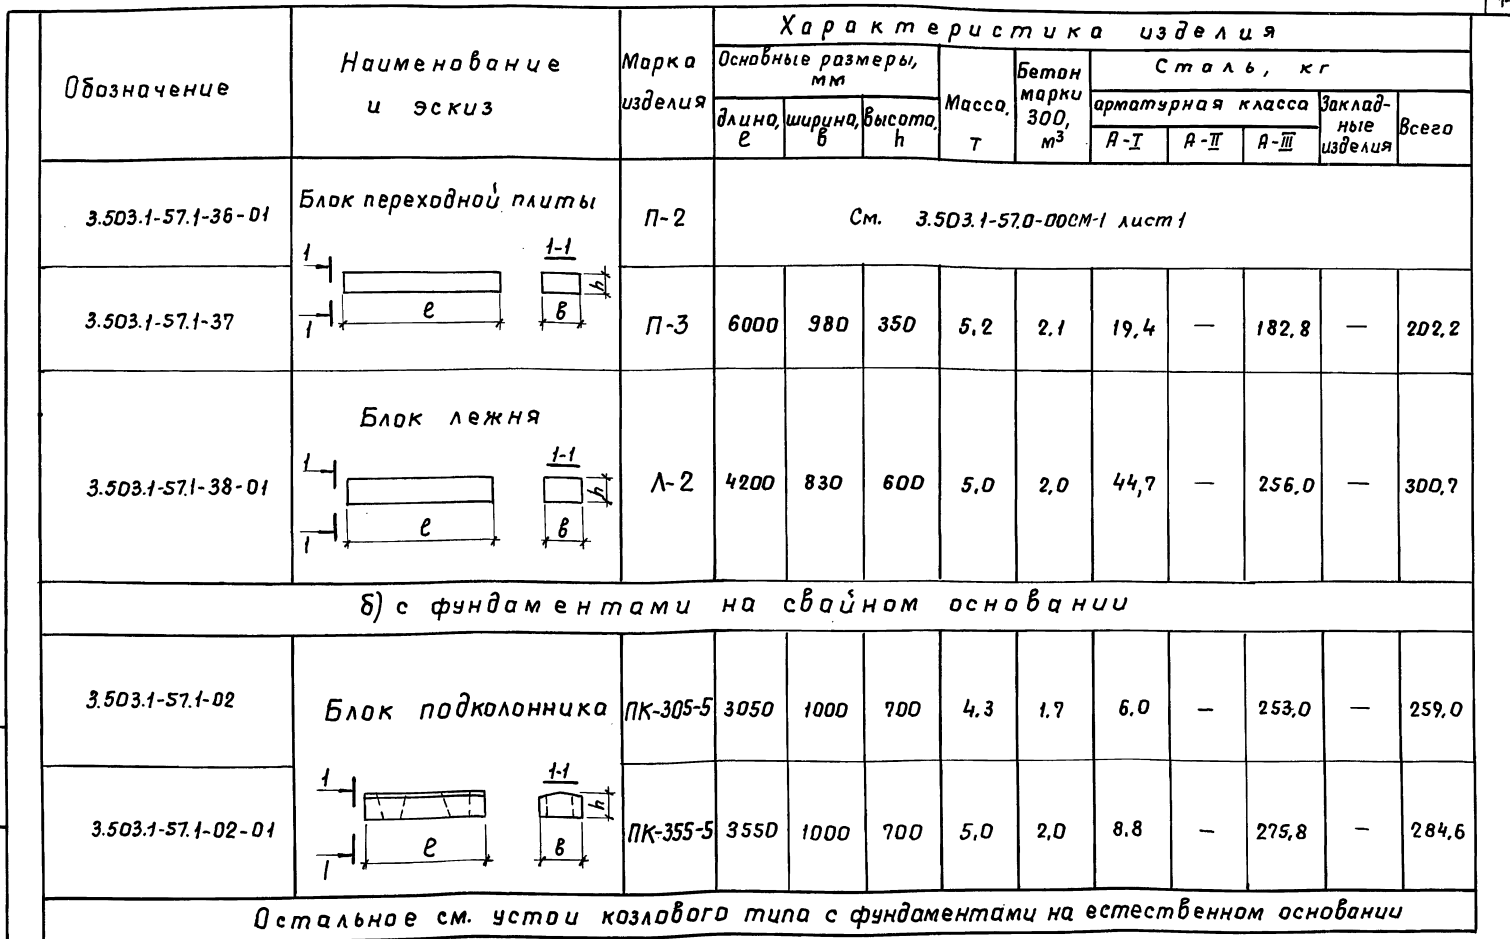 Обозначение
Наименование
и эскиз
Марка
изделия
Характеристика изделия
Основные размеры,
мм
длина,
l
ширина,
в
высота,
h
Масса,
т
Бетон
марки
300,
м³
Сталь, кг
арматурная класса
А-I
А-II
А-III
Заклад-
ные
изделия
Всего
3.503.1-57.1-36-01
Блок переходной плиты
П-2
См. 3.503.1-57.0-00СМ-1 лист 1
1
1-1
h
l
в
1
3.503.1-57.1-37
П-3 6000 980 350 5,2 2,1 19,4 — 182,8 — 202,2
Блок лежня
1
1-1
h
l
в
1
3.503.1-57.1-38-01
Л-2 4200 830 600 5,0 2,0 44,7 — 256,0 — 300,7
б) с фундаментами на свайном основании
3.503.1-57.1-02
Блок подколонника
ПК-305-5 3050 1000 700 4,3 1,7 6,0 — 253,0 — 259,0
1
1-1
h
l
в
1
3.503.1-57.1-02-01
ПК-355-5 3550 1000 700 5,0 2,0 8,8 — 275,8 — 284,6
Остальное см. устои козлового типа с фундаментами на естественном основании